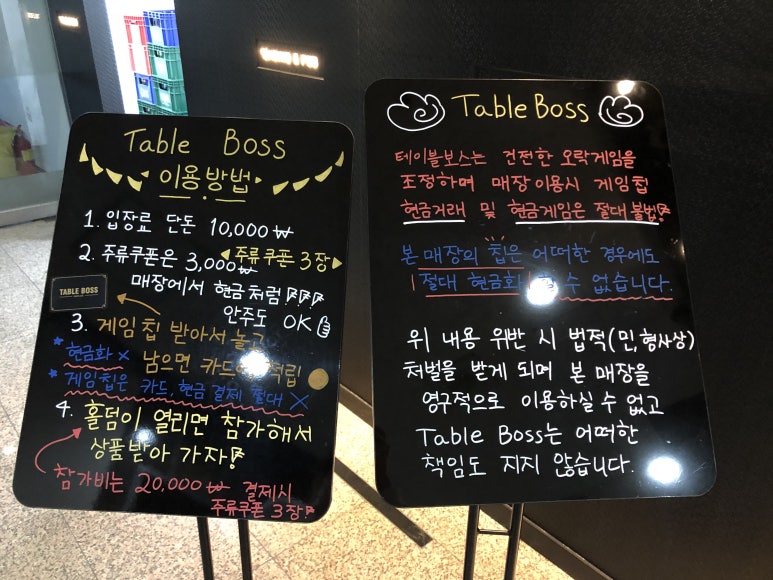 Table Boss
이용방법
1. 입장료 단돈 10,000₩
2. 주류쿠폰은 3,000₩ 주류쿠폰 3장
매장에서 현금처럼!!!
안주도 OK
TABLE BOSS
3. 게임칩 받아서 놀고
남으면 카드 적립
*현금화 X
*게임칩은 카드, 현금 결제 절대 X
4. 홀덤이 열리면 참가해서
상품받아 가자!
참가비는 20,000₩ 결제시
주류쿠폰 3장!
Table Boss
테이블보스는 건전한 오락게임을
조정하며 매장 이용시 게임칩
현금거래 및 현금게임은 절대 불법!
본 매장의 칩은 어떠한 경우에도
절대 현금화 할 수 없습니다.
위 내용 위반 시 법적(민,형사상)
처벌을 받게 되며 본 매장을
영구적으로 이용하실 수 없고
Table Boss는 어떠한
책임도 지지 않습니다.